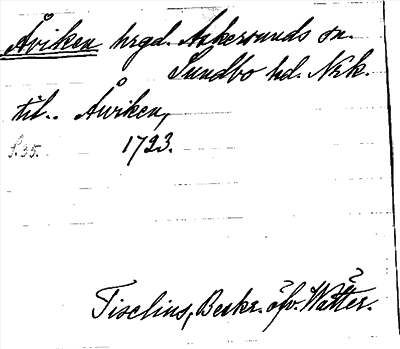 Åviken hrgd. Askersunds sn.
Sundbo hd. Nrk.
til.. Åwiken,
S. 35. 1723.
Tiselius, Beskr. öfv. Wätter.